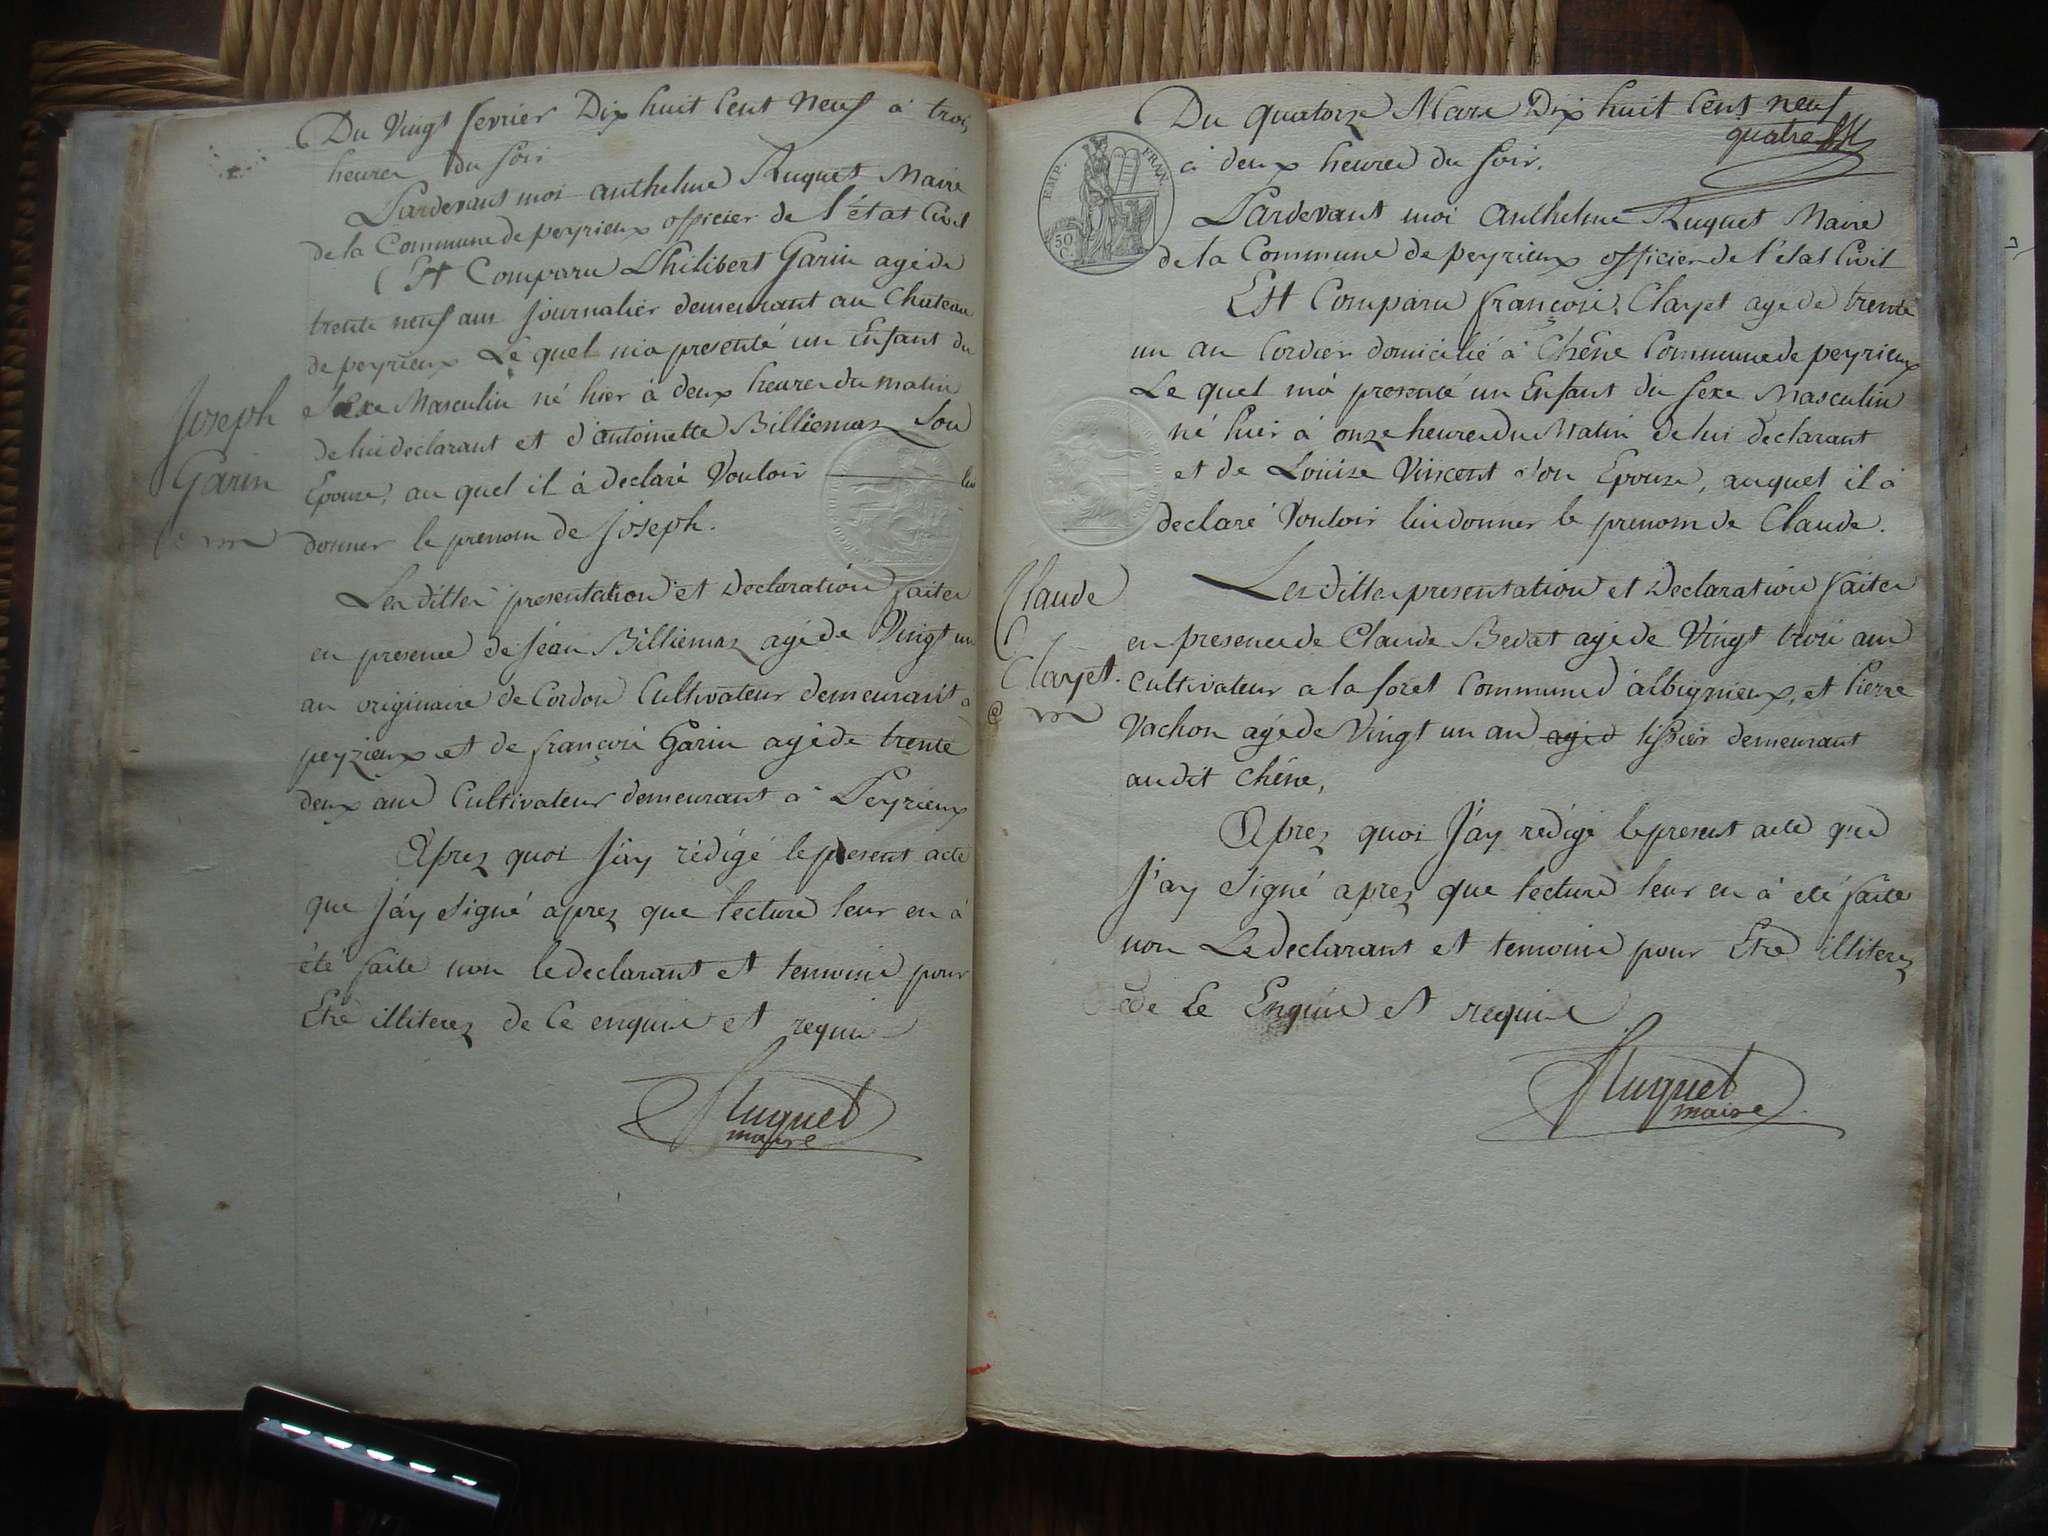 Du Vingt fevrier Dix huit Cent Neuf à trois
heures du soir
Pardevant moi anthelme Ruquet Maire
de la Commune de peyrieux officier de l'état Civil
Est Comparu Philibert Garin agé de
trente neuf ans journalier demeurant au Chateau
de peyrieux Le quel m'a presenté un Enfant du
sexe Masculin né hier à deux heures du matin
de lui declarant et d'antoinette Billiemaz Son
Epouse, au quel il à declaré Vouloir lui
donner le prenom de joseph.
Joseph
Garin
Les dittes presentation et Declaration faites
en presence de jéan Billiemaz agé de Vingt un
an originaire de Cordon Cultivateur demeurant a
peyzieux et de françois Garin agé de trente
deux ans Cultivateur demeurant à Peyrieux
Aprez quoi J'ay rédigé le present acte
que J'ay signé aprez que lecture leur en à
été faite non le declarant et temoins pour
Etre illiterez de Ce enquis et requis
Ruquet
maire
Du quatorze Mars Dix huit Cent neuf
quatre
à deux heures du soir.
EMP. FRAN.
50 C.
Pardevant moi Anthelme Ruquet Maire
de la Commune de peyrieux officier de l'état Civil
Est Comparu françois Clayet agé de trente
un an Cordier domicilié à Chêne Commune de peyrieux
Le quel m'à presenté un Enfant du sexe Masculin
né hier à onze heures du Matin de lui declarant
et de Louise Vincent son Epouse, auquel il à
declaré Vouloir lui donner le prenom de Claude.
Claude
Clayet.
Les dittes presentation et Declaration faites
en presence de Claude Bevat agé de Vingt trois ans
Cultivateur a la foret Commune d'albignieux, et Pierre
Vachon agé de Vingt un an agé d tissier demeurant
audit Chêne,
Aprez quoi J'ay redigé le present acte que
J'ay signé aprez que lecture leur en à eté faite
non Le declarant et temoins pour Etre illiterez
de Ce Enquis et requis
Ruquet
maire